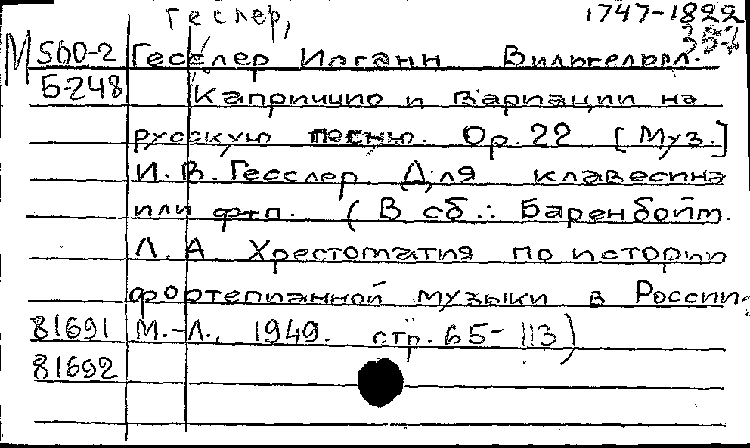 Геслер, 1747-1822
M 500-2 Гесслер Иоганн Вильгельм.
Б-248 Каприччио и вариации на
русскую песню. Ор. 22 [Муз.]
И. В. Гесслер Для клавесина
или ф-п. (В сб.: Баренбойм.
Л. А Хрестоматия по истории
фортепианной музыки в России,
81691 М.-Л., 1949. стр. 65-113)
81692